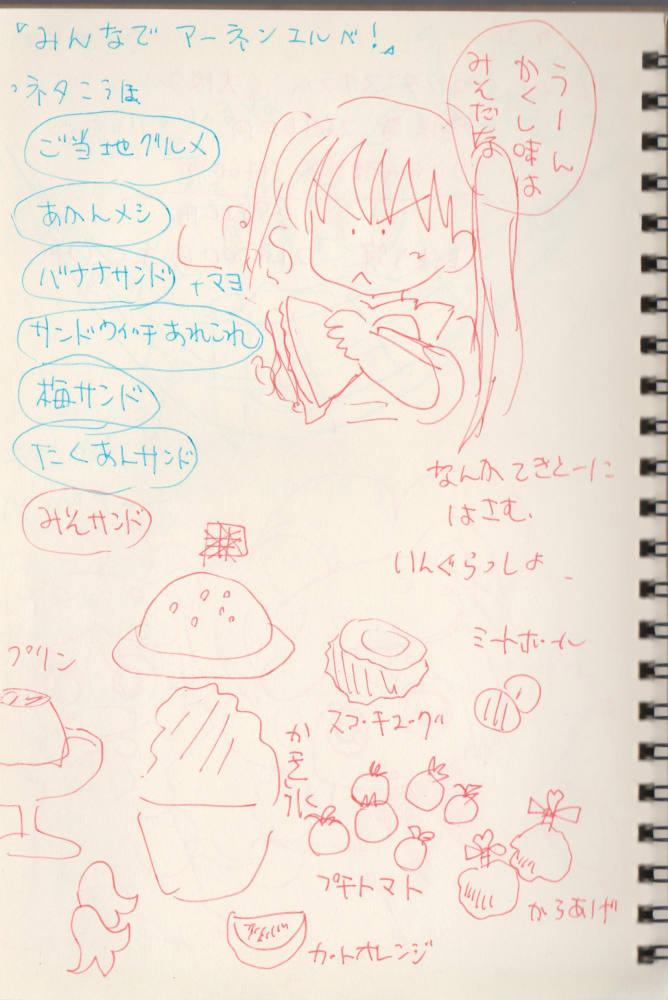 『みんなで アーネンエルベ!』
・ネタこうほ
ご当地グルメ
あかんメシ
バナナサンド
+マヨ
サンドウィッチあれこれ
梅サンド
たくあんサンド
みそサンド
うーん
かくし味は
みそだな
なんかてきとーに
はさむ、
いんぐらっしょ
プリン
ミートボール
かき氷
プチトマト
からあげ
カットオレンジ